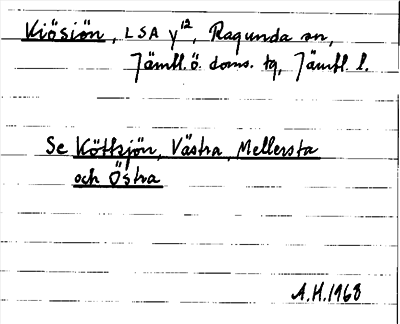 Kiösiön, LSA y¹², Ragunda sn,
Jämtl. ö. doms. tg, Jämtl. l.
Se Köttsjön, Västra, Mellersta
och Östra
A.H. 1968